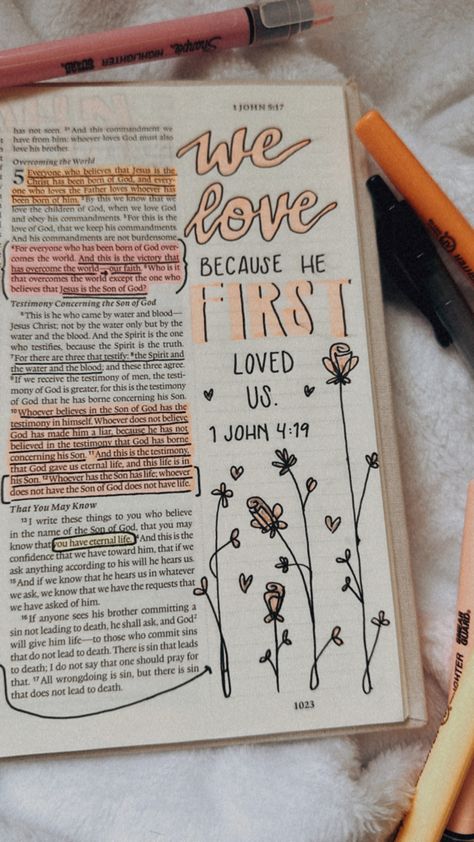 Sharpie. HIGHLIGHTER
1 JOHN 5:17
has not seen. 21And this commandment we
have from him: whoever loves God must also
love his brother.
Overcoming the World
5 Everyone who believes that Jesus is the
Christ has been born of God, and every-
one who loves the Father loves whoever has
been born of him. 2By this we know that we
love the children of God, when we love God
and obey his commandments. 3For this is the
love of God, that we keep his commandments.
And his commandments are not burdensome.
4For everyone who has been born of God over-
comes the world. And this is the victory that
has overcome the world—our faith. 5Who is it
that overcomes the world except the one who
believes that Jesus is the Son of God?
Testimony Concerning the Son of God
6This is he who came by water and blood—
Jesus Christ; not by the water only but by the
water and the blood. And the Spirit is the one
who testifies, because the Spirit is the truth.
7For there are three that testify: 8the Spirit and
the water and the blood; and these three agree.
9If we receive the testimony of men, the testi-
mony of God is greater, for this is the testimony
of God that he has borne concerning his Son.
10Whoever believes in the Son of God has the
testimony in himself. Whoever does not believe
God has made him a liar, because he has not
believed in the testimony that God has borne
concerning his Son. 11And this is the testimony,
that God gave us eternal life, and this life is in
his Son. 12Whoever has the Son has life; whoever
does not have the Son of God does not have life.
That You May Know
13I write these things to you who believe
in the name of the Son of God, that you may
know that you have eternal life. 14And this is the
confidence that we have toward him, that if we
ask anything according to his will he hears us.
15And if we know that he hears us in whatever
we ask, we know that we have the requests that
we have asked of him.
16If anyone sees his brother committing a
sin not leading to death, he shall ask, and God2
will give him life—to those who commit sins
that do not lead to death. There is sin that leads
to death; I do not say that one should pray for
that. 17All wrongdoing is sin, but there is sin
that does not lead to death.
we
love
BECAUSE HE
FIRST
LOVED
US.
1 JOHN 4:19
1023